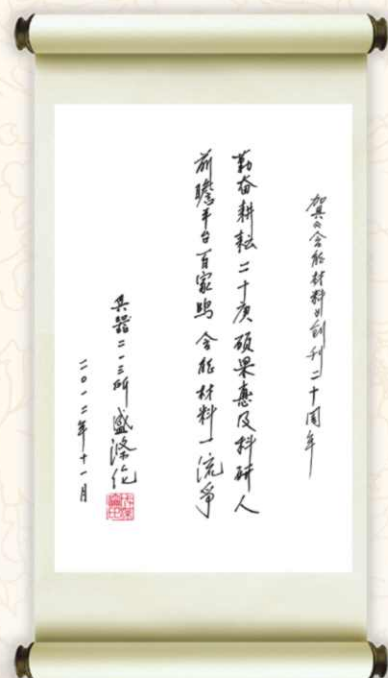 贺《含能材料》创刊二十周年
勤奋耕耘二十庚 硕果惠及科研人
前瞻平台百家鸣 含能材料一流争
兵器二一三所 盛涤伦
二〇一二年十一月